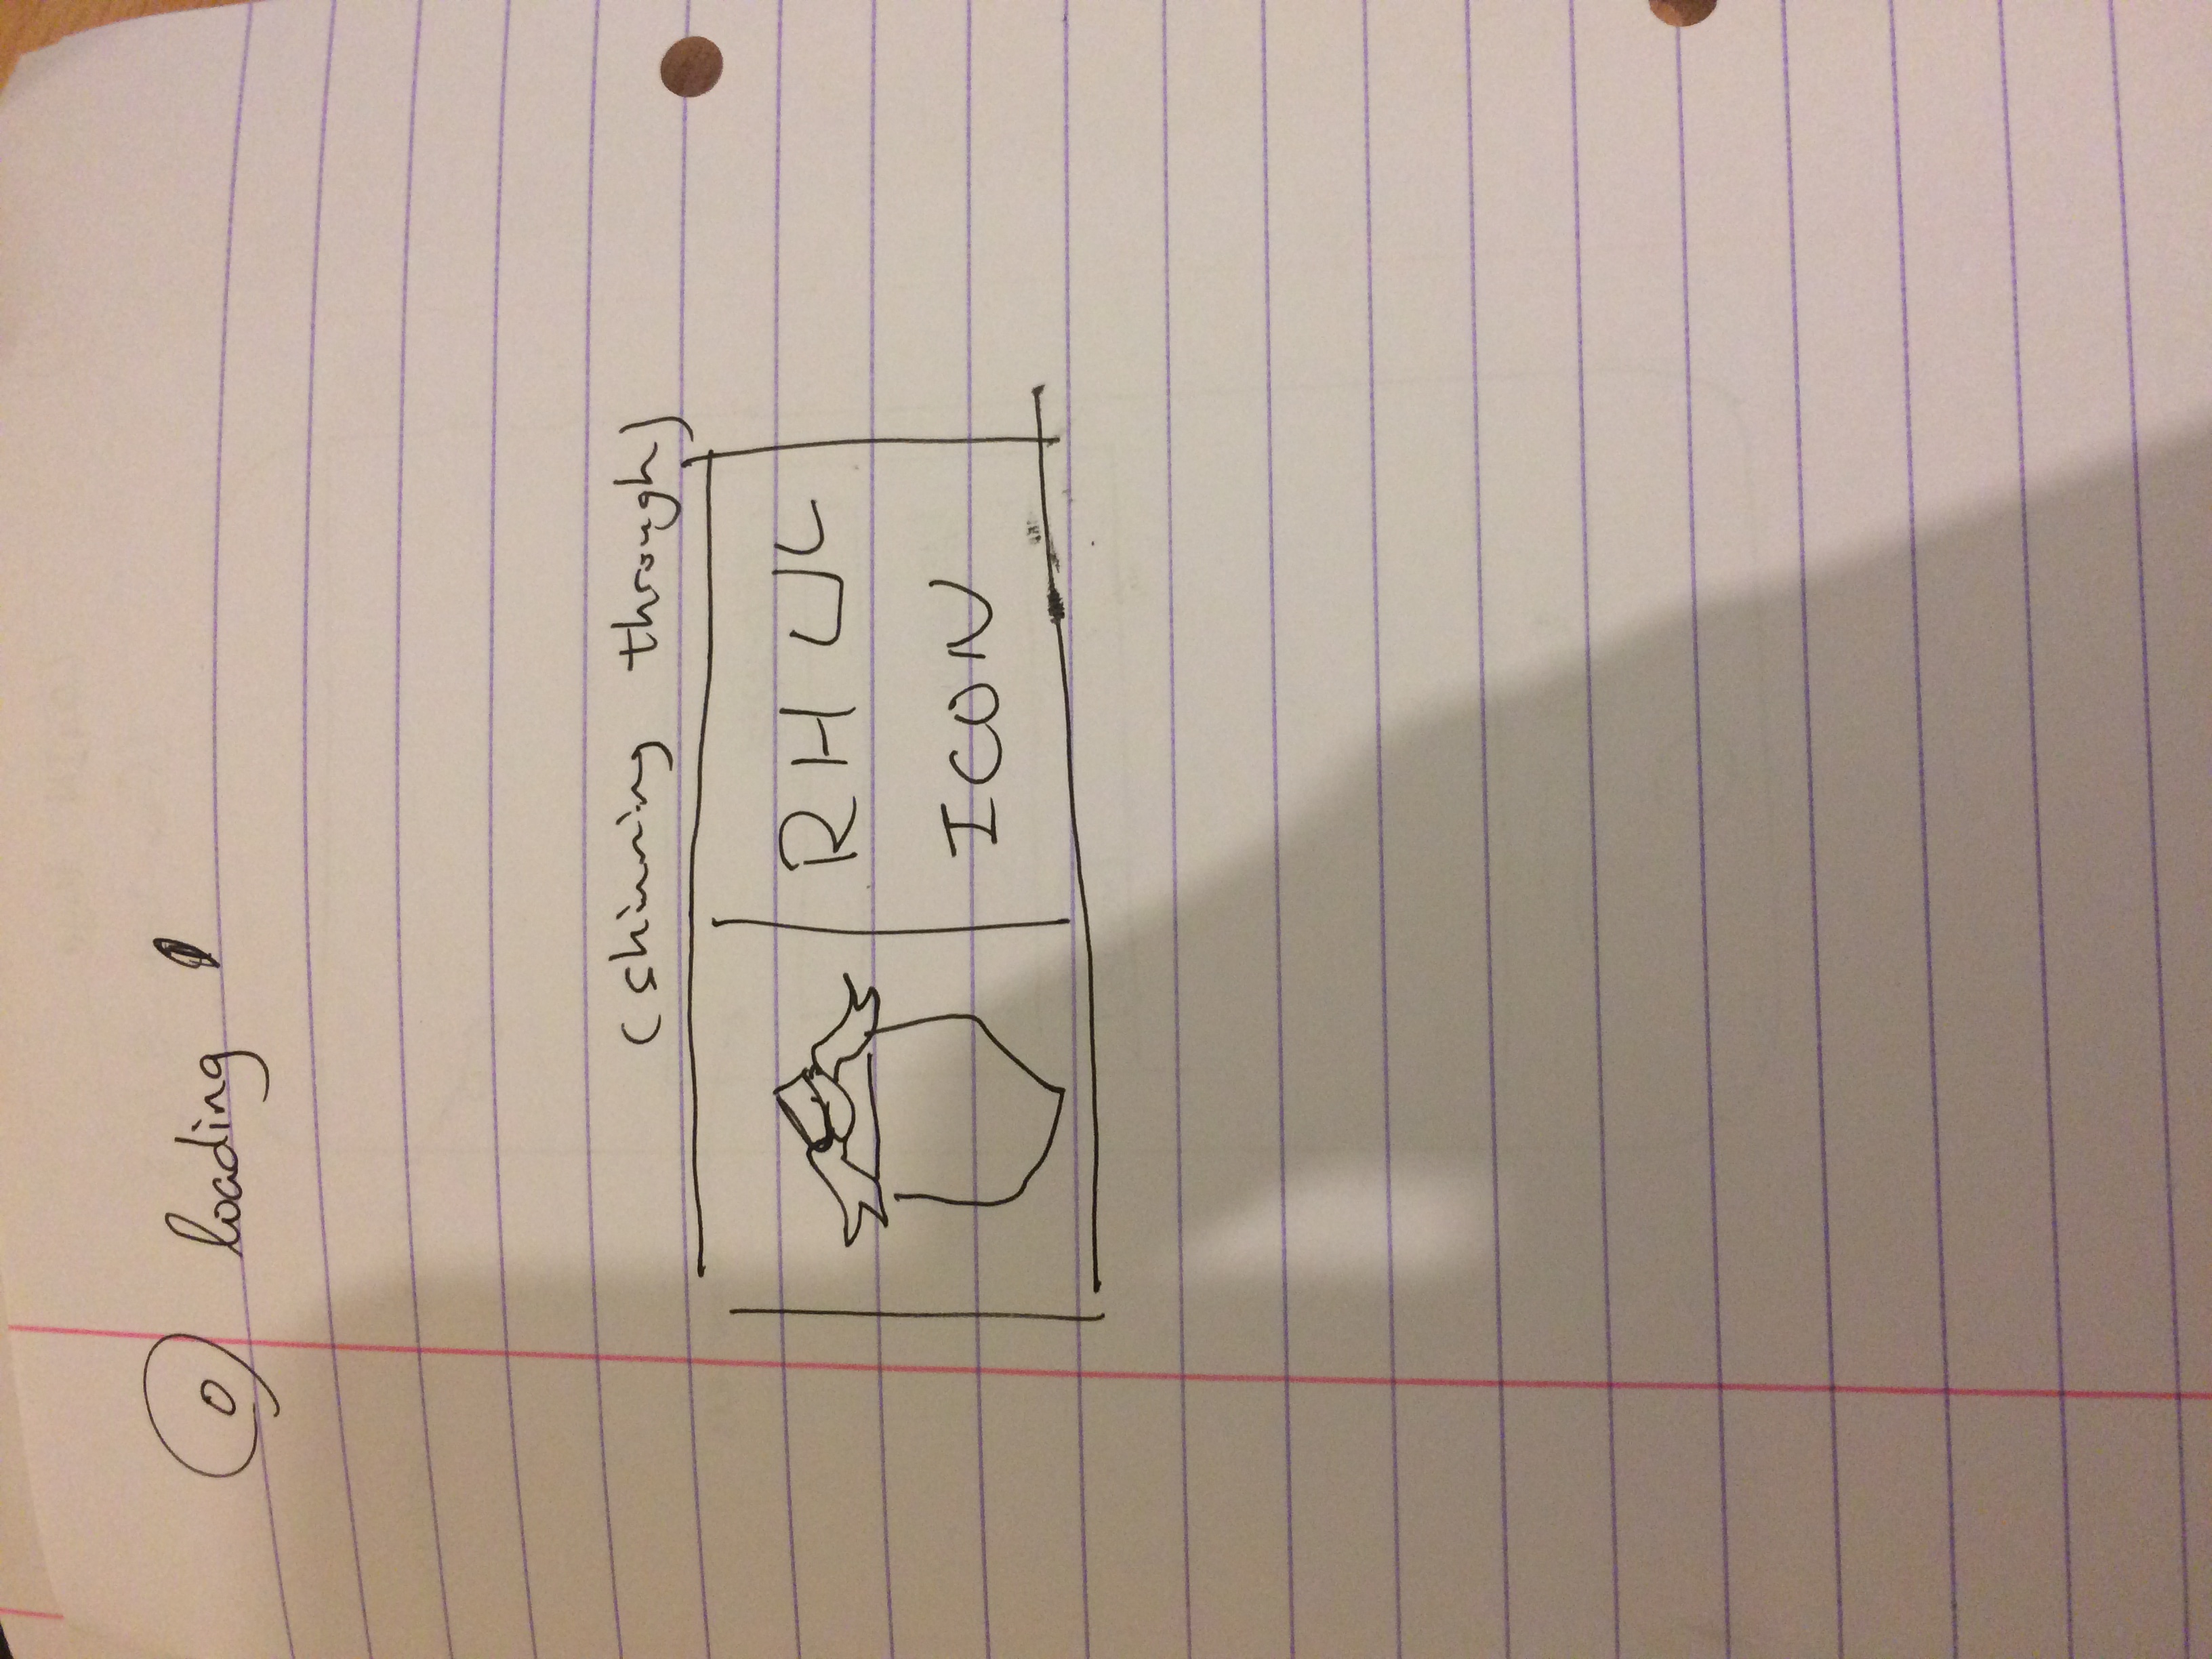 0 loading
(shinning through)
RHUL
ICON